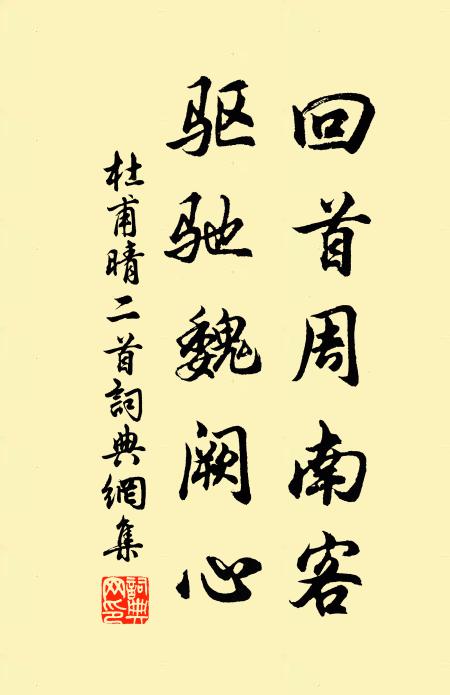 回首周南客
驱驰魏阙心
杜甫晴二首詞典網集
詞典網印